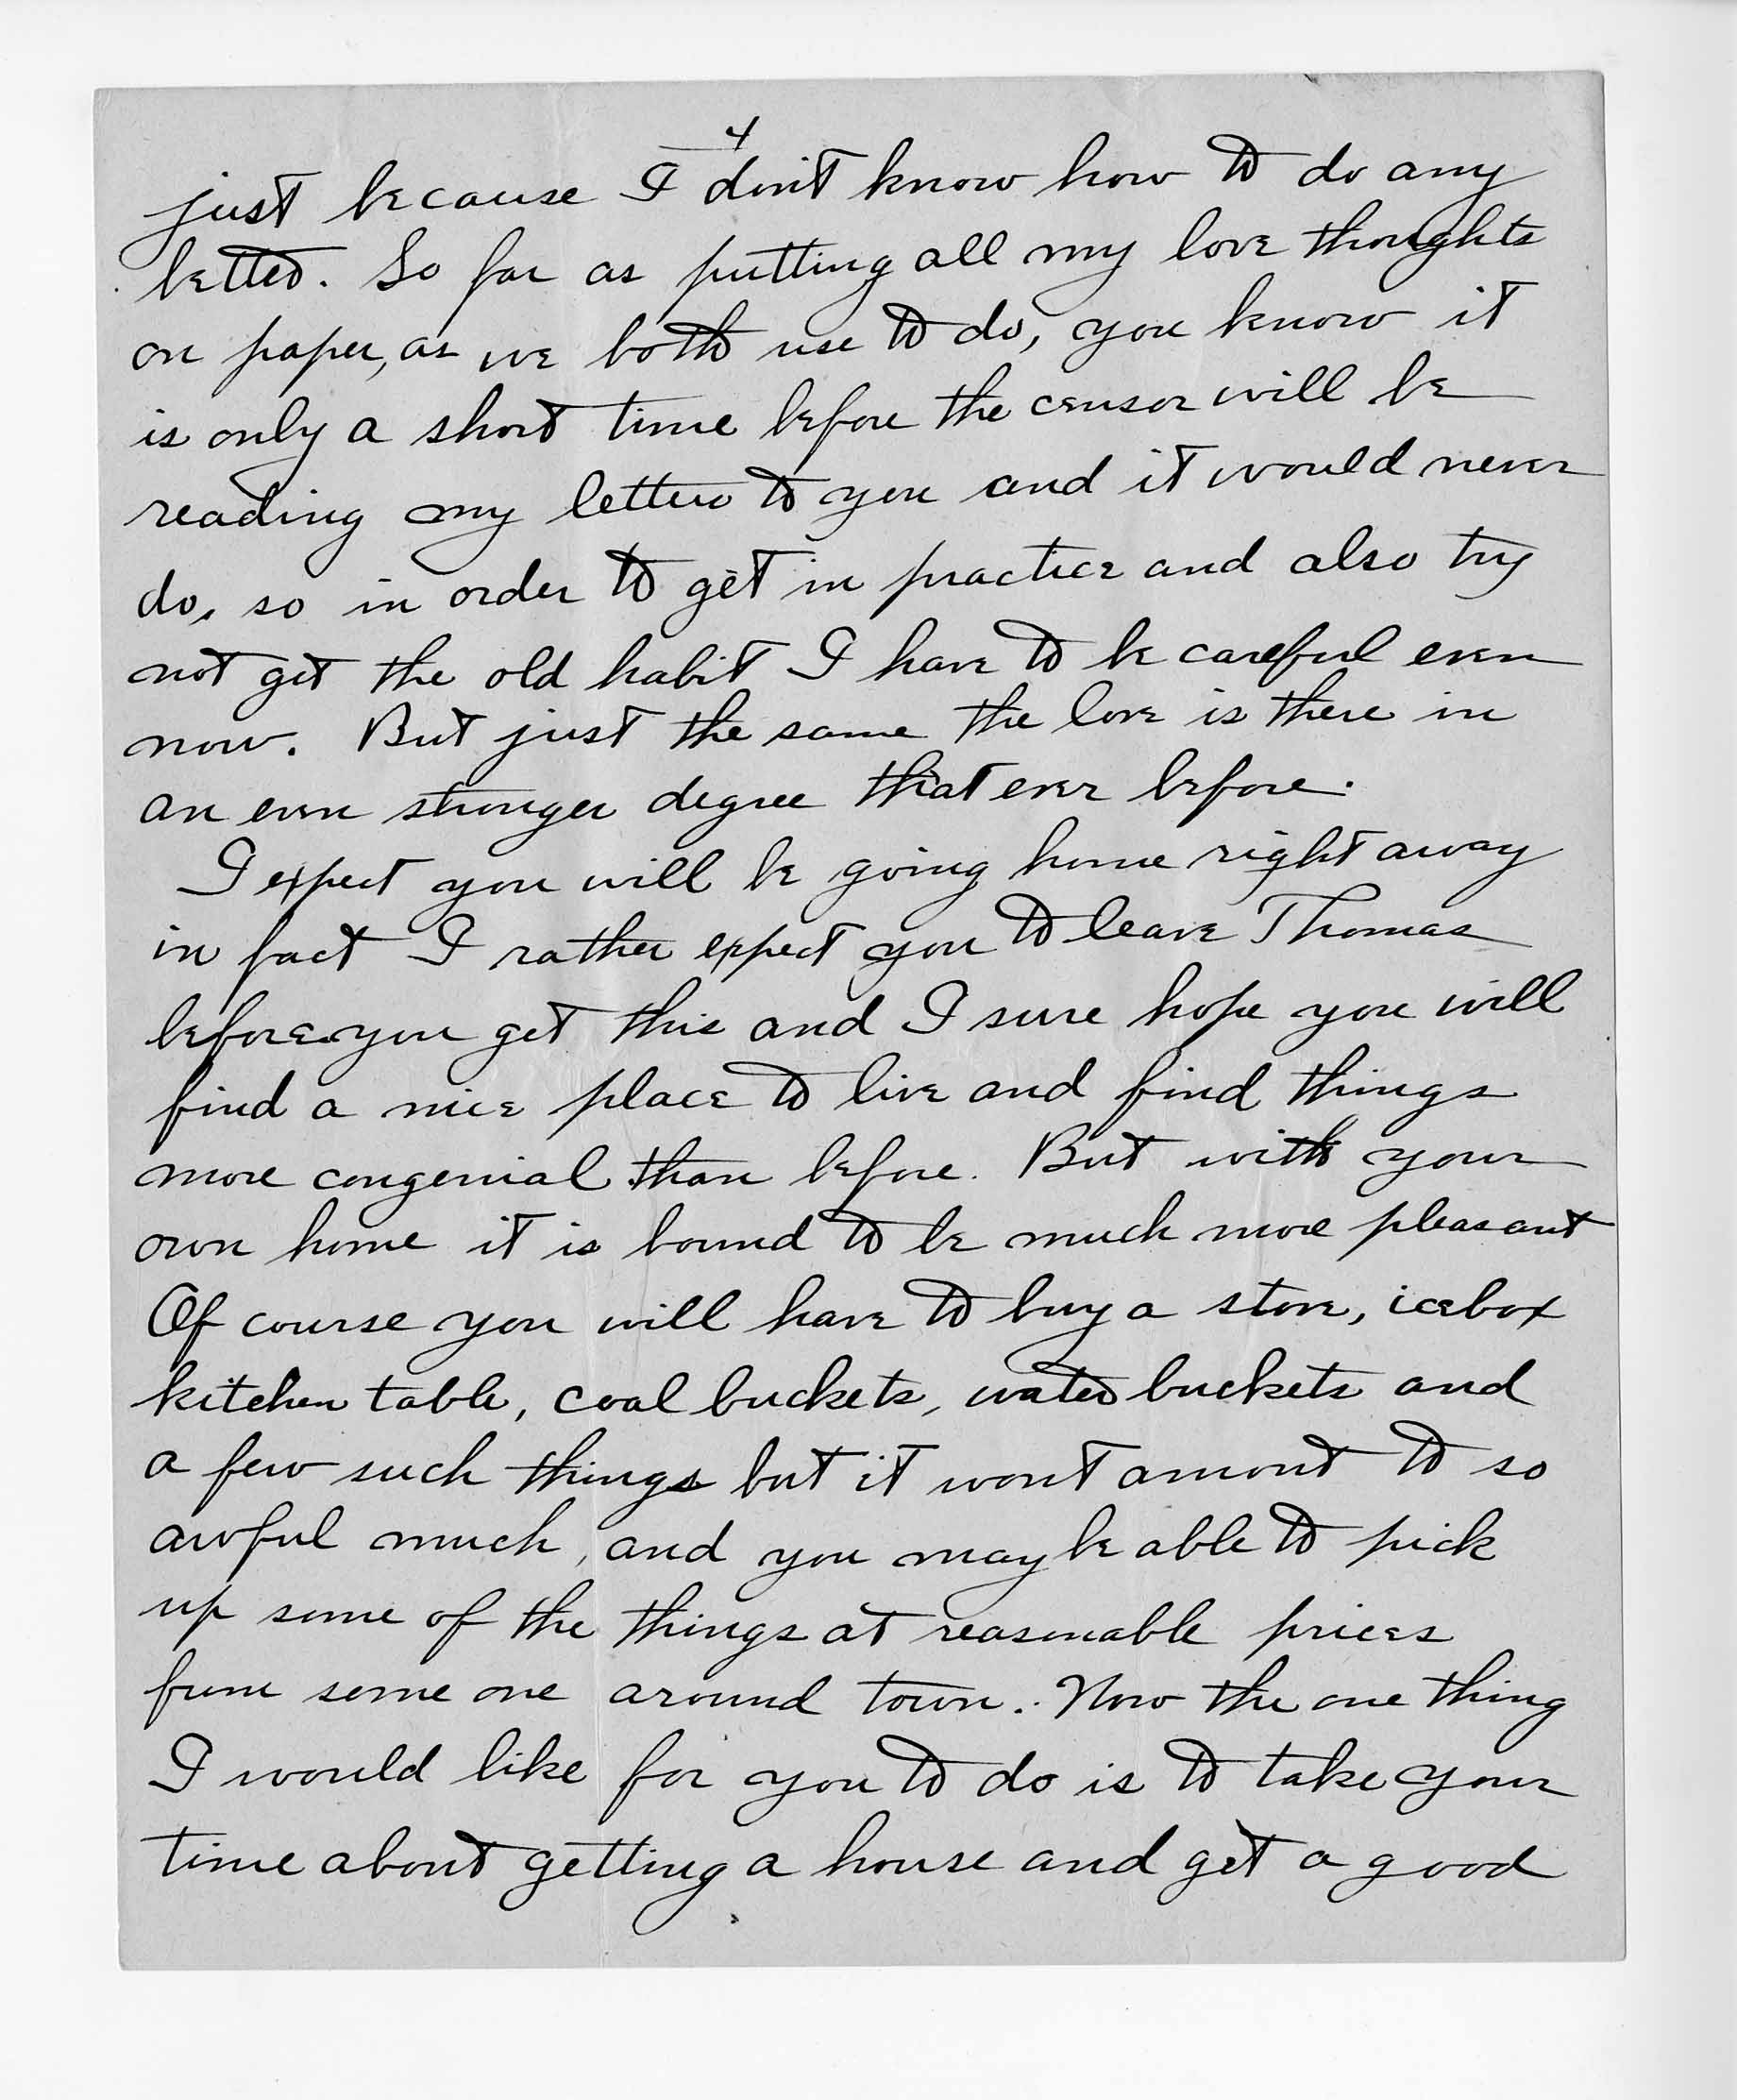 4
just because I don't know how to do any
better. So far as putting all my love thoughts
on paper, as we both use to do, you know it
is only a short time before the censor will be
reading my letters to you and it would never
do, so in order to get in practice and also try
not get the old habit I have to be careful even
now. But just the same the love is there in
an even stronger degree that ever before.
I expect you will be going home right away
in fact I rather expect you to leave Thomas
before you get this and I sure hope you will
find a nice place to live and find things
more congenial than before. But with your
own home it is bound to be much more pleasant
Of course you will have to buy a stove, icebox
kitchen table, coal buckets, water buckets and
a few such things but it wont amont to so
awful much, and you may be able to pick
up some of the things at reasonable prices
from some one around town. Now the one thing
I would like for you to do is to take your
time about getting a house and get a good